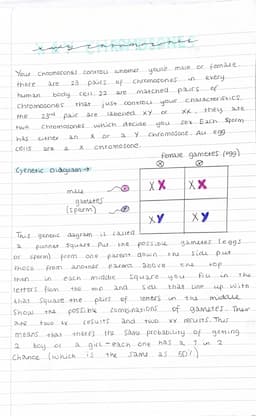 X AND Y CHROMOSOMES
Your chromosomes control whether youre male or female.
there are 23 pairs of chromosomes in every
human body cell. 22 are matched pairs of
chromosomes that just control your characteristics.
the 23rd pair are labelled XY or XX. they are
two chromosomes which decide you sex. Each sperm
has either an X or a Y chromosome. All egg
cells are a X chromosome.
Genetic Diagram →
Female gametes (egg)
male
gametes
(sperm)
X X
X X
X Y
X Y
This genetic diagram is called
a punnet square. Put the possible gametes (eggs
or sperm) from one parent down the side put
those from another parent above the top
then in each middle square you fill in the
letters from the top and side that line up with
that square. the pairs of letters in the middle
show the possible combinations of gametes. There
are two XX results and two XY results. This
means that theres the same probability of getting
a boy or a girl - each one has a 1 in 2
chance (which is the same as 50%)